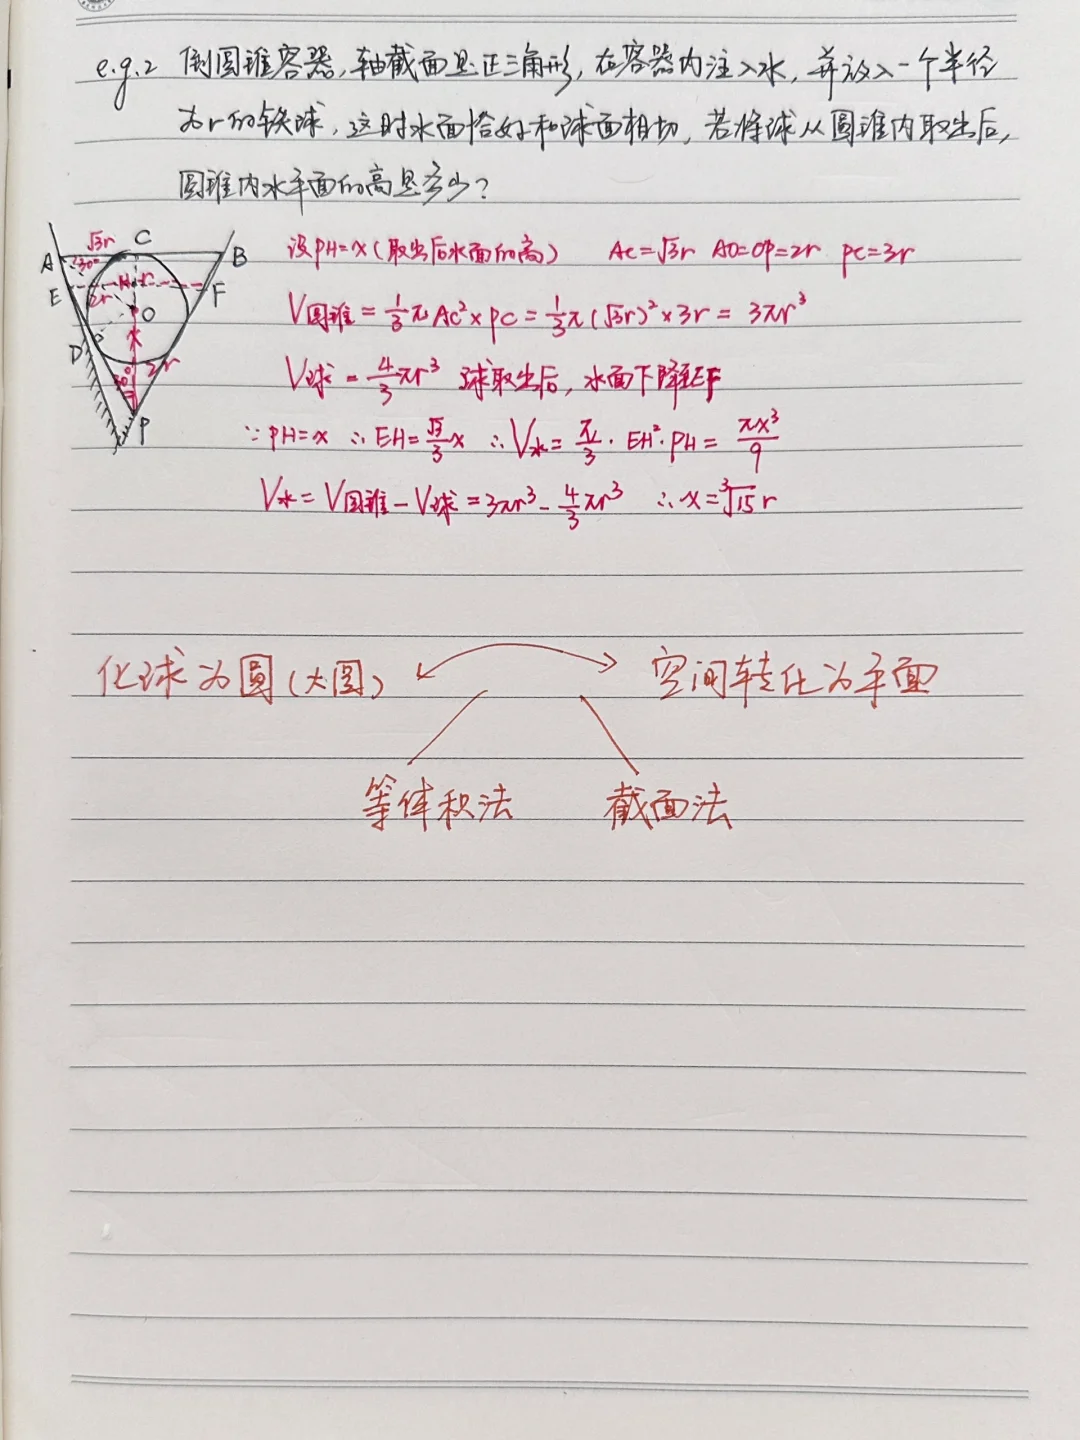 e.g.2 倒圆锥容器,轴截面是正三角形,在容器内注入水,并放入一个半径
为r的铁球,这时水面恰好和球面相切,若将球从圆锥内取出后,
圆锥内水平面的高是多少?
√3r C
A 30° H r B
E 2r F
O
D 2r
30°
P
设PH=x(取出后水面的高) AC=√3r AO=OP=2r PC=3r
V圆锥=1/3πAC²×PC=1/3π(√3r)²×3r=3πr³
V球=4/3πr³ 球取出后,水面下降至EF
∵PH=x ∴EH=√3/3x ∴V水=π/3·EH²·PH=πx³/9
V水=V圆锥-V球=3πr³-4/3πr³ ∴x=³√15r
化球为圆(大圆) 空间转化为平面
等体积法 截面法